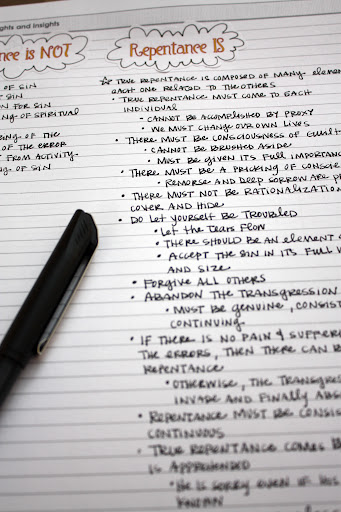 ghts and Insights
nce is NOT
of SIN
SIN
ON FOR SIN
NG OF SPIRITUAL
EING OF THE
OF THE ERROR
FROM ACTIVITY
NG OF SIN
Repentance IS
☆ TRUE REPENTANCE IS COMPOSED OF MANY ELEME
EACH ONE RELATED TO THE OTHERS
• TRUE REPENTANCE MUST COME TO EACH
INDIVIDUAL
• CANNOT BE ACCOMPLISHED BY PROXY
• WE MUST CHANGE OUR OWN LIVES
• THERE MUST BE CONSCIOUSNESS OF GUILT
• CANNOT BE BRUSHED ASIDE
• MUST BE GIVEN ITS FULL IMPORTANC
• THERE MUST BE A PRICKING OF CONSCIE
• REMORSE AND DEEP SORROW ARE PR
• THERE MUST NOT BE RATIONALIZATION
COVER AND HIDE
• DO LET YOURSELF BE TROUBLED
• LET THE TEARS FLOW
• THERE SHOULD BE AN ELEMENT
• ACCEPT THE SIN IN ITS FULL W
AND SIZE
• FORGIVE ALL OTHERS
• ABANDON THE TRANSGRESSION
• MUST BE GENUINE, CONSIST
CONTINUING
• IF THERE IS NO PAIN & SUFFER
THE ERRORS, THEN THERE CAN B
REPENTANCE
• OTHERWISE, THE TRANSGRES
INVADE AND FINALLY ABS
• REPENTANCE MUST BE CONSIS
CONTINUOUS
• TRUE REPENTANCE COMES B
IS APPREHENDED
• HE IS SORRY EVEN IF HIS
KNOWN